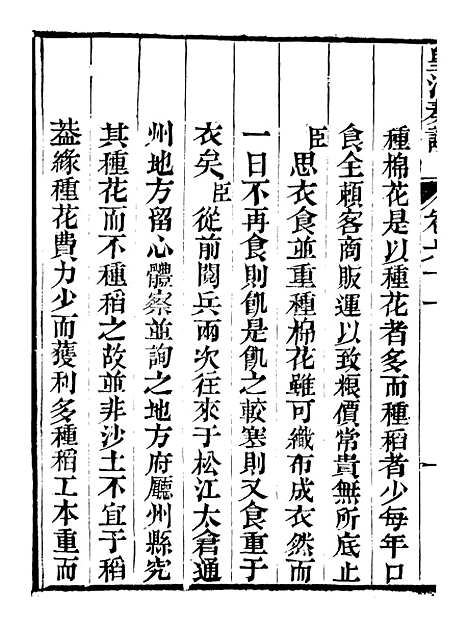 皇清奏議
卷六十一
種棉花是以種花者多而種稻者少每年口
食全賴客商販運以致粮價常貴無所底止
臣思衣食並重種棉花雖可織布成衣然而
一日不再食則飢是飢之較寒則又食重于
衣矣臣從前閱兵兩次往來于松江太倉通
州地方留心體察並詢之地方府廳州縣究
其種花而不種稻之故並非沙土不宜于稻
葢緣種花費力少而獲利多種稻工本重而